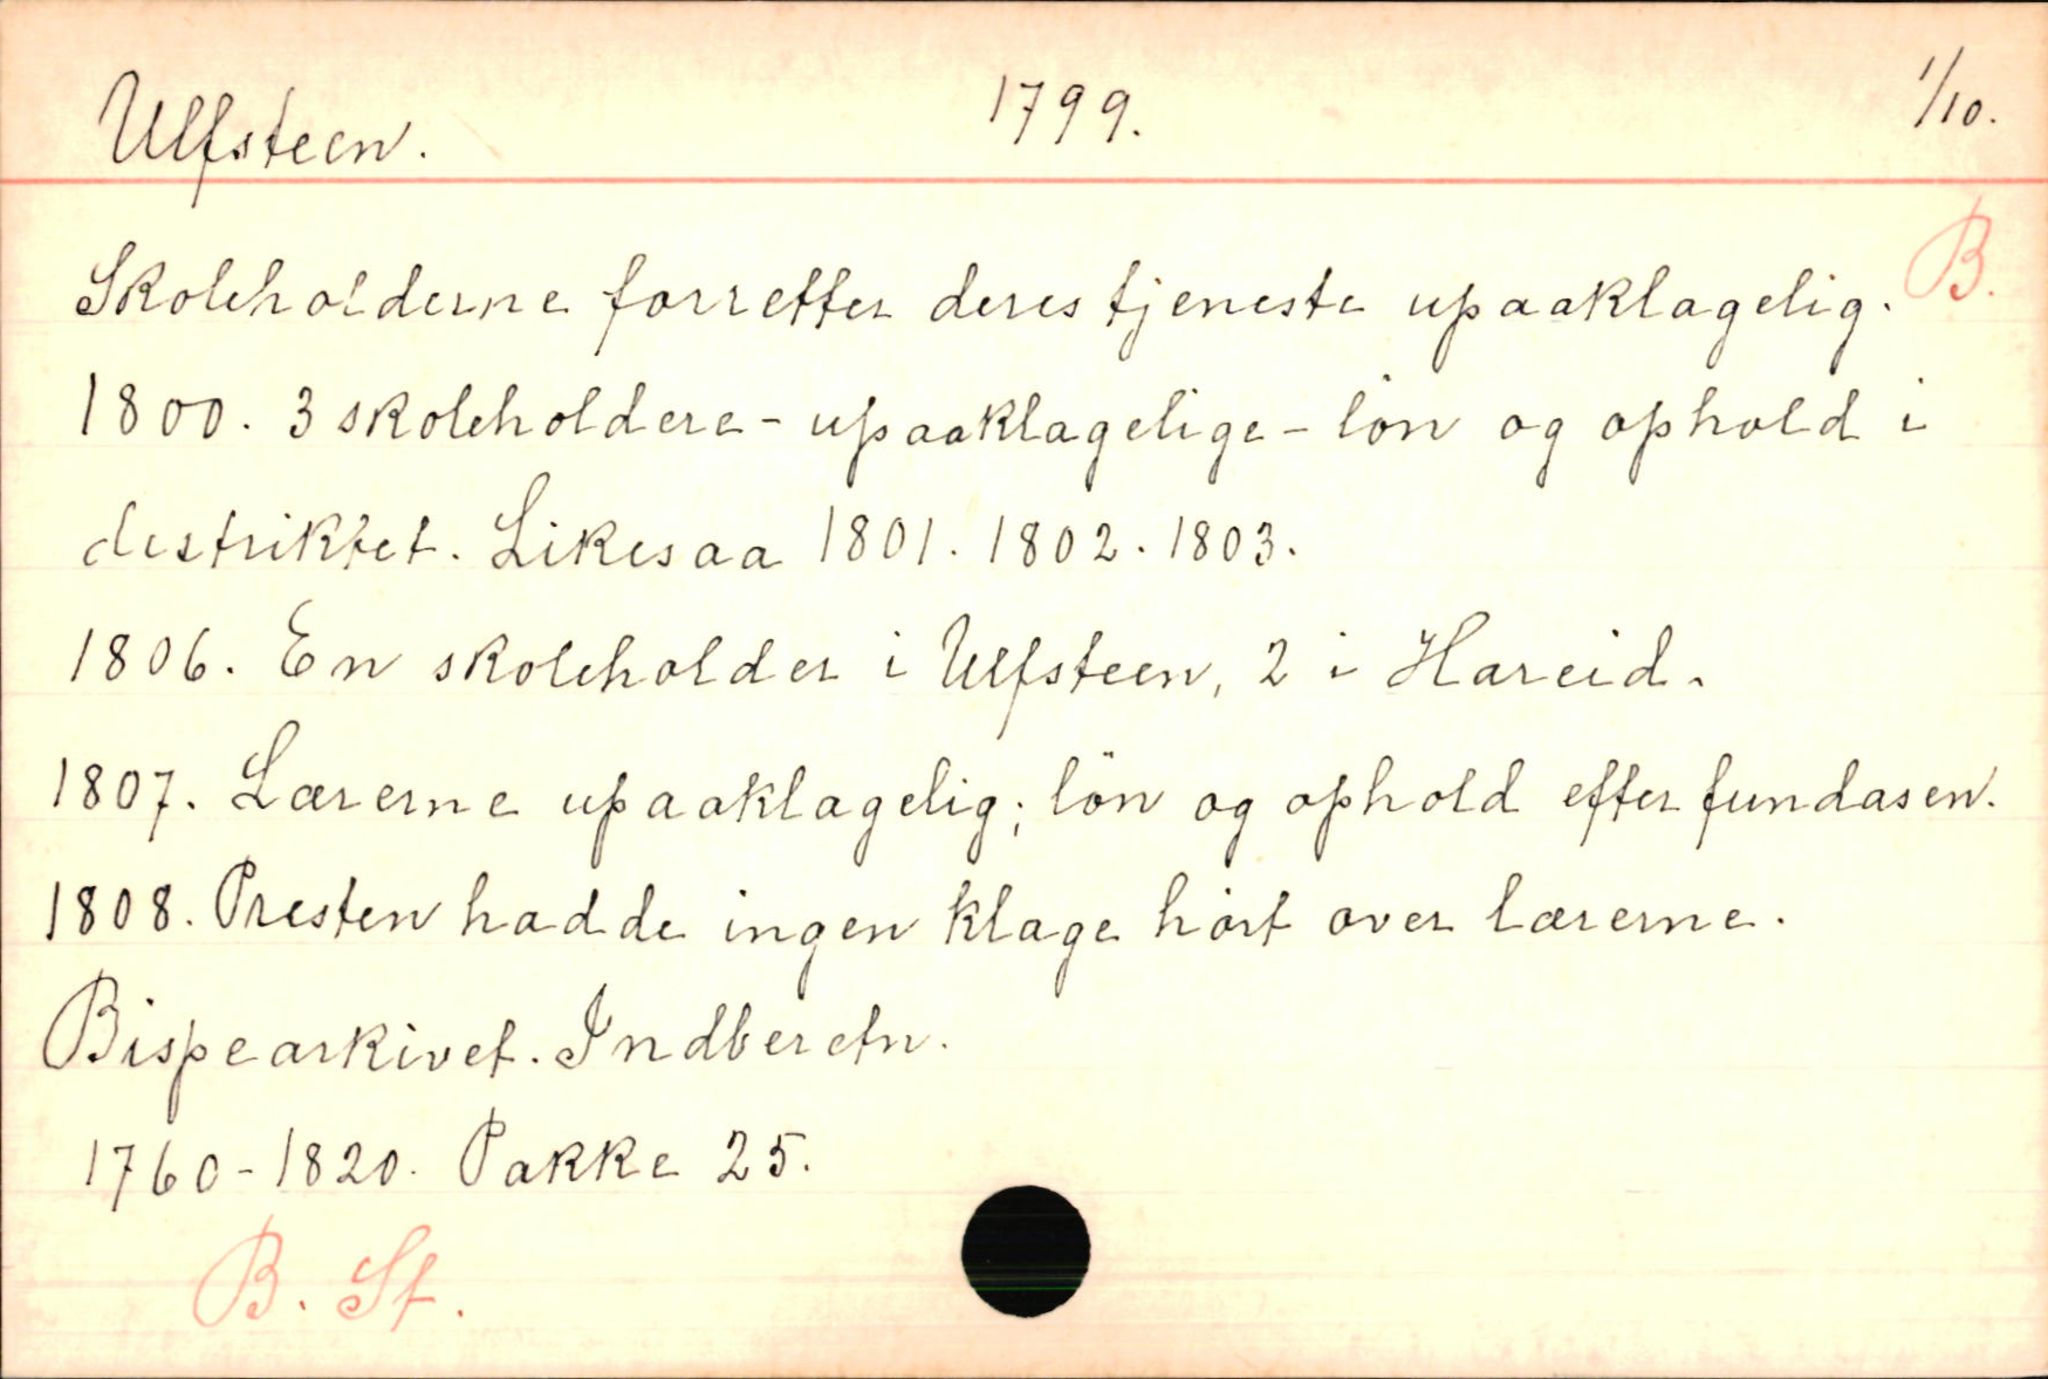 Ulfsteen. 1799. 1/10.
B.
Skoleholderne forretter deres tjeneste upaaklagelig.
1800. 3 skoleholdere - upaaklagelige - lön og ophold i
distriktet. Likesaa 1801. 1802. 1803.
1806. En skoleholder i Ulfsteen, 2 i Hareid.
1807. Lærerne upaaklagelig; lön og ophold efter fundasen.
1808. Presten hadde ingen klage hört over lærerne.
Bispearkivet. Indberetn.
1760-1820. Pakke 25.
B. St.